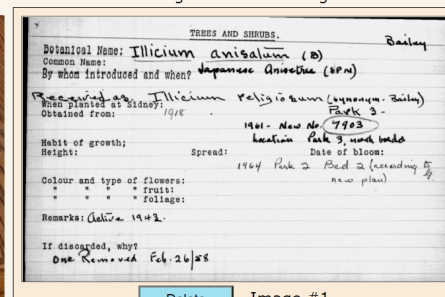 TREES AND SHRUBS.
Bailey
Botanical Name: Illicium anisatum (B)
Common Name: Japanese Anisetree (SPN)
By whom introduced and when?
Received as Illicium religiosum (synonym - Bailey)
When planted at Sidney: 1918 Park 3 -
Obtained from:
1961 - New No. 7903
Location Park 3, north beds
Habit of growth;
Height: Spread: Date of bloom:
1964 Park 2 Bed 2 (according to new plan)
Colour and type of flowers:
" " " " fruit:
" " " " foliage:
Remarks: Active 1943.
If discarded, why?
One Removed Feb. 26/58
Delete Image #1